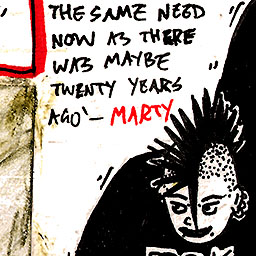 THE SAME NEED
NOW AS THERE
WAS MAYBE
TWENTY YEARS
AGO"— MARTY